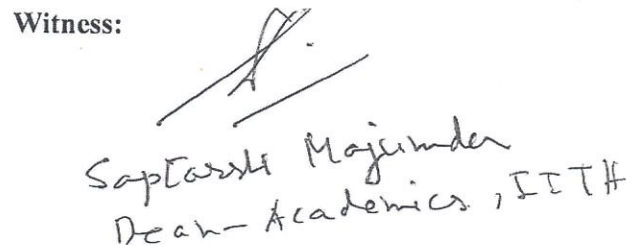 Witness:
Saptarshi Majumder
Dean-Academics, IITH